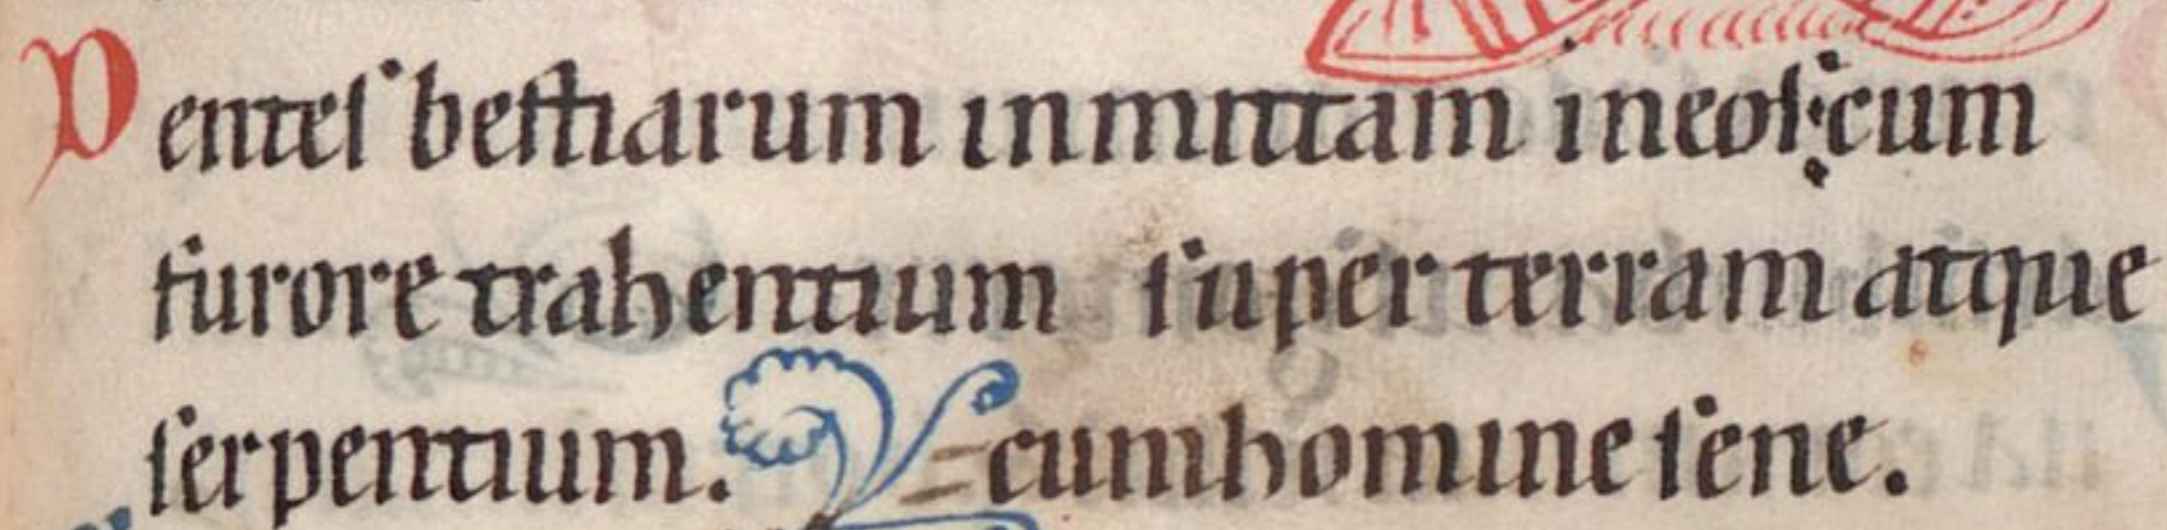 Dentes bestiarum inmittam in eos; cum
furore trahentium super terram atque
serpentium. = cum homine sene.